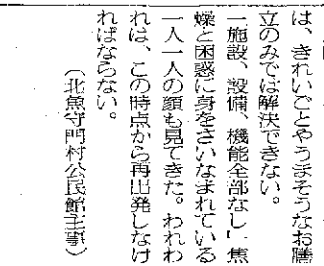 は、きれいごとやうまそうなお膳
立のみでは解決できない。
「施設、設備、機能全部なし」焦
燥と困惑に身をさいなまれている
一人一人の顔も見てきた。われわ
れは、この時点から再出発しなけ
ればならない。
（北魚守門村公民館主事）